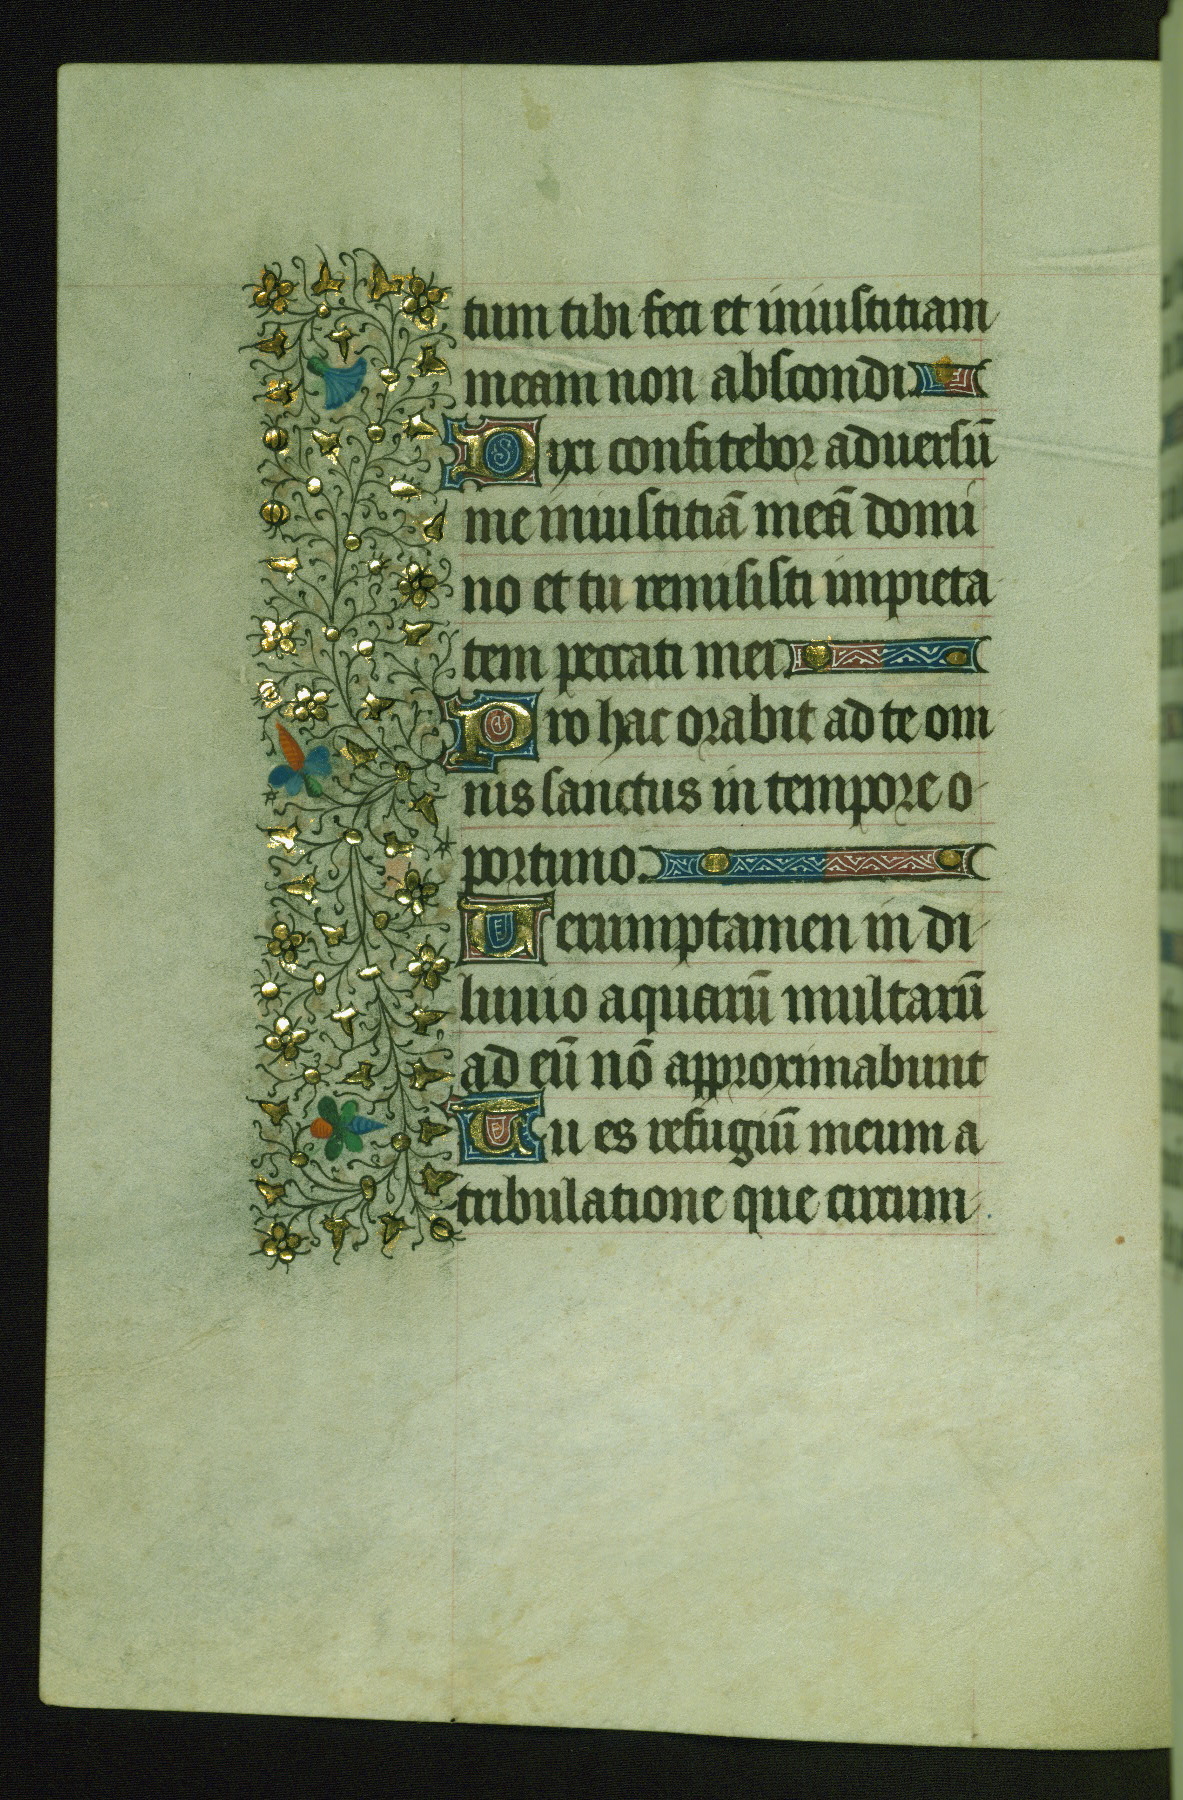 tum tibi feci et iniusticiam
meam non abscondi.
Dixi confitebor aduersū
me iniusticiā meā domi
no et tu remisisti impieta
tem peccati mei.
Pro hac orabit ad te om
nis sanctus in tempore o
portuno.
Uerumptamen in di
luuio aquarū multarū
ad eū nō approximabunt
Tu es refugiū meum a
tribulatione que circum